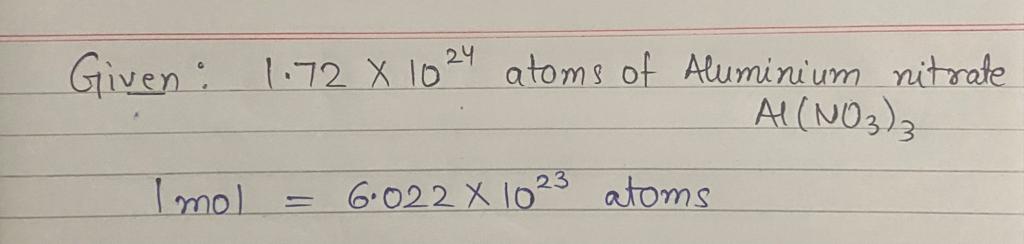 Given : 1.72 × 10²⁴ atoms of Aluminium nitrate
Al(NO₃)₃
1 mol = 6.022 × 10²³ atoms